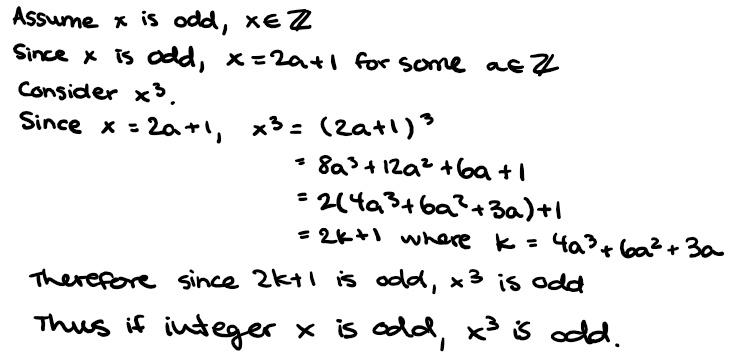 Assume x is odd, x∈ℤ
Since x is odd, x = 2a+1 for some a∈ℤ
Consider x³.
Since x = 2a+1, x³ = (2a+1)³
= 8a³+12a²+6a+1
= 2(4a³+6a²+3a)+1
= 2k+1 where k = 4a³+6a²+3a
Therefore since 2k+1 is odd, x³ is odd
Thus if integer x is odd, x³ is odd.